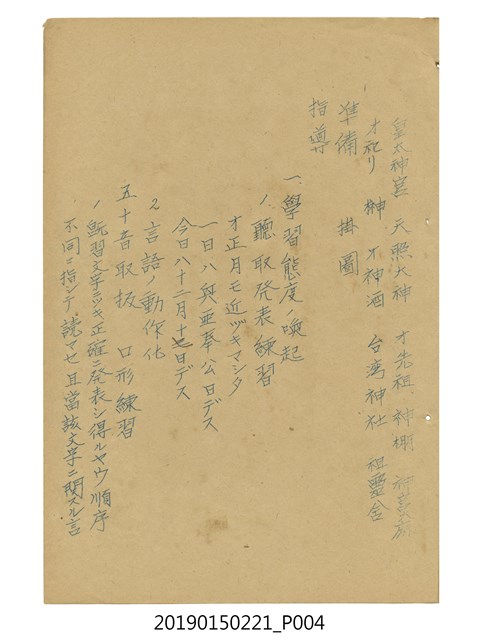 皇太神宮 天照大神 オ先祖 神棚
オ祀リ 榊 オ神酒 台湾神社 祖靈舍
準備 掛圖
指導
一、學習態度ノ喚起
1、聽取発表ノ練習
オ正月モ近ヅキマシタ
一日ハ興亜奉公日デス
今日ハ十二月十七日デス
2 言語ノ動作化
五十音取扱 口形練習
1 既習文字ニツキ正確ニ発表シ得ルヤウ順序
不同ニ指シテ読マセ且當該文字ニ関スル言
20190150221_P004